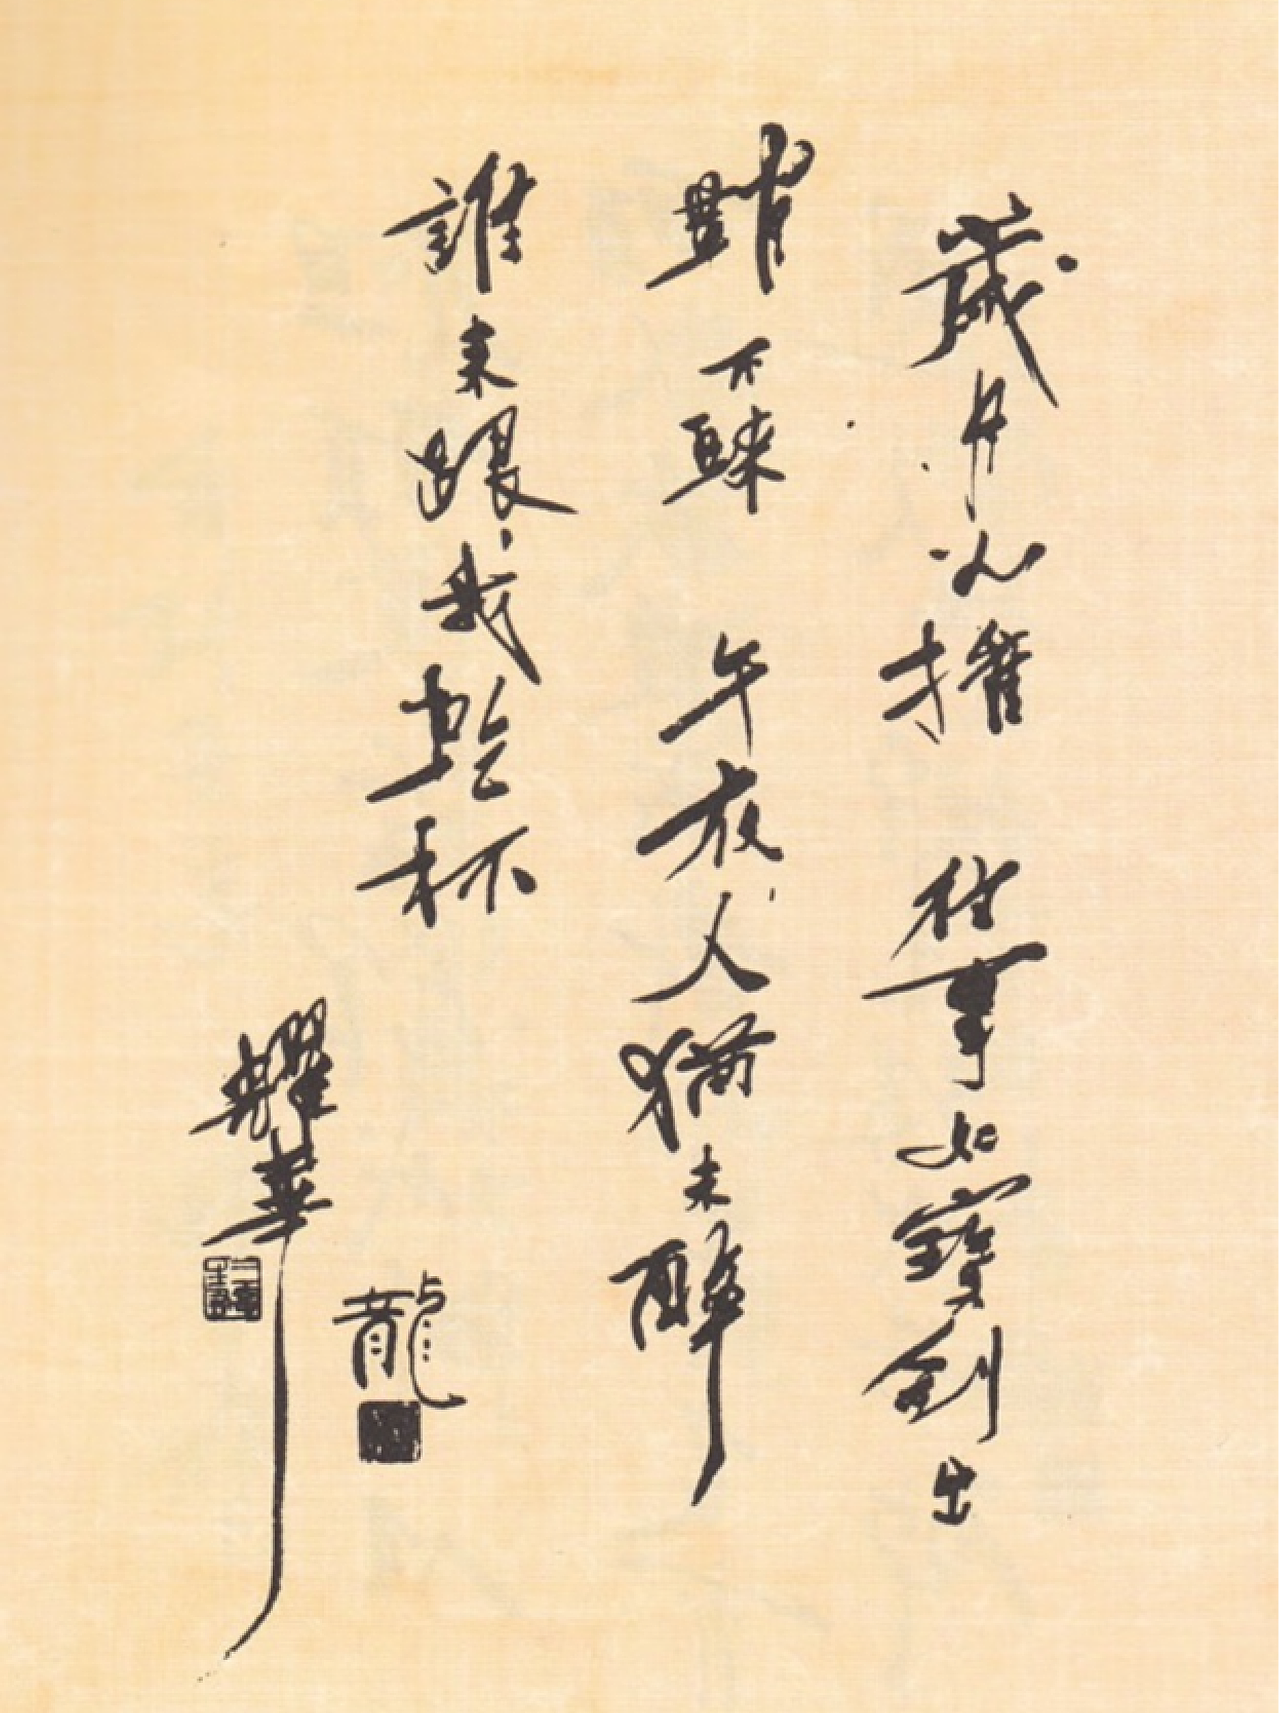 歲月心摧 往事如寶劍出
鞘不 午夜人猶未醉
誰來跟我乾杯
耀華
龍